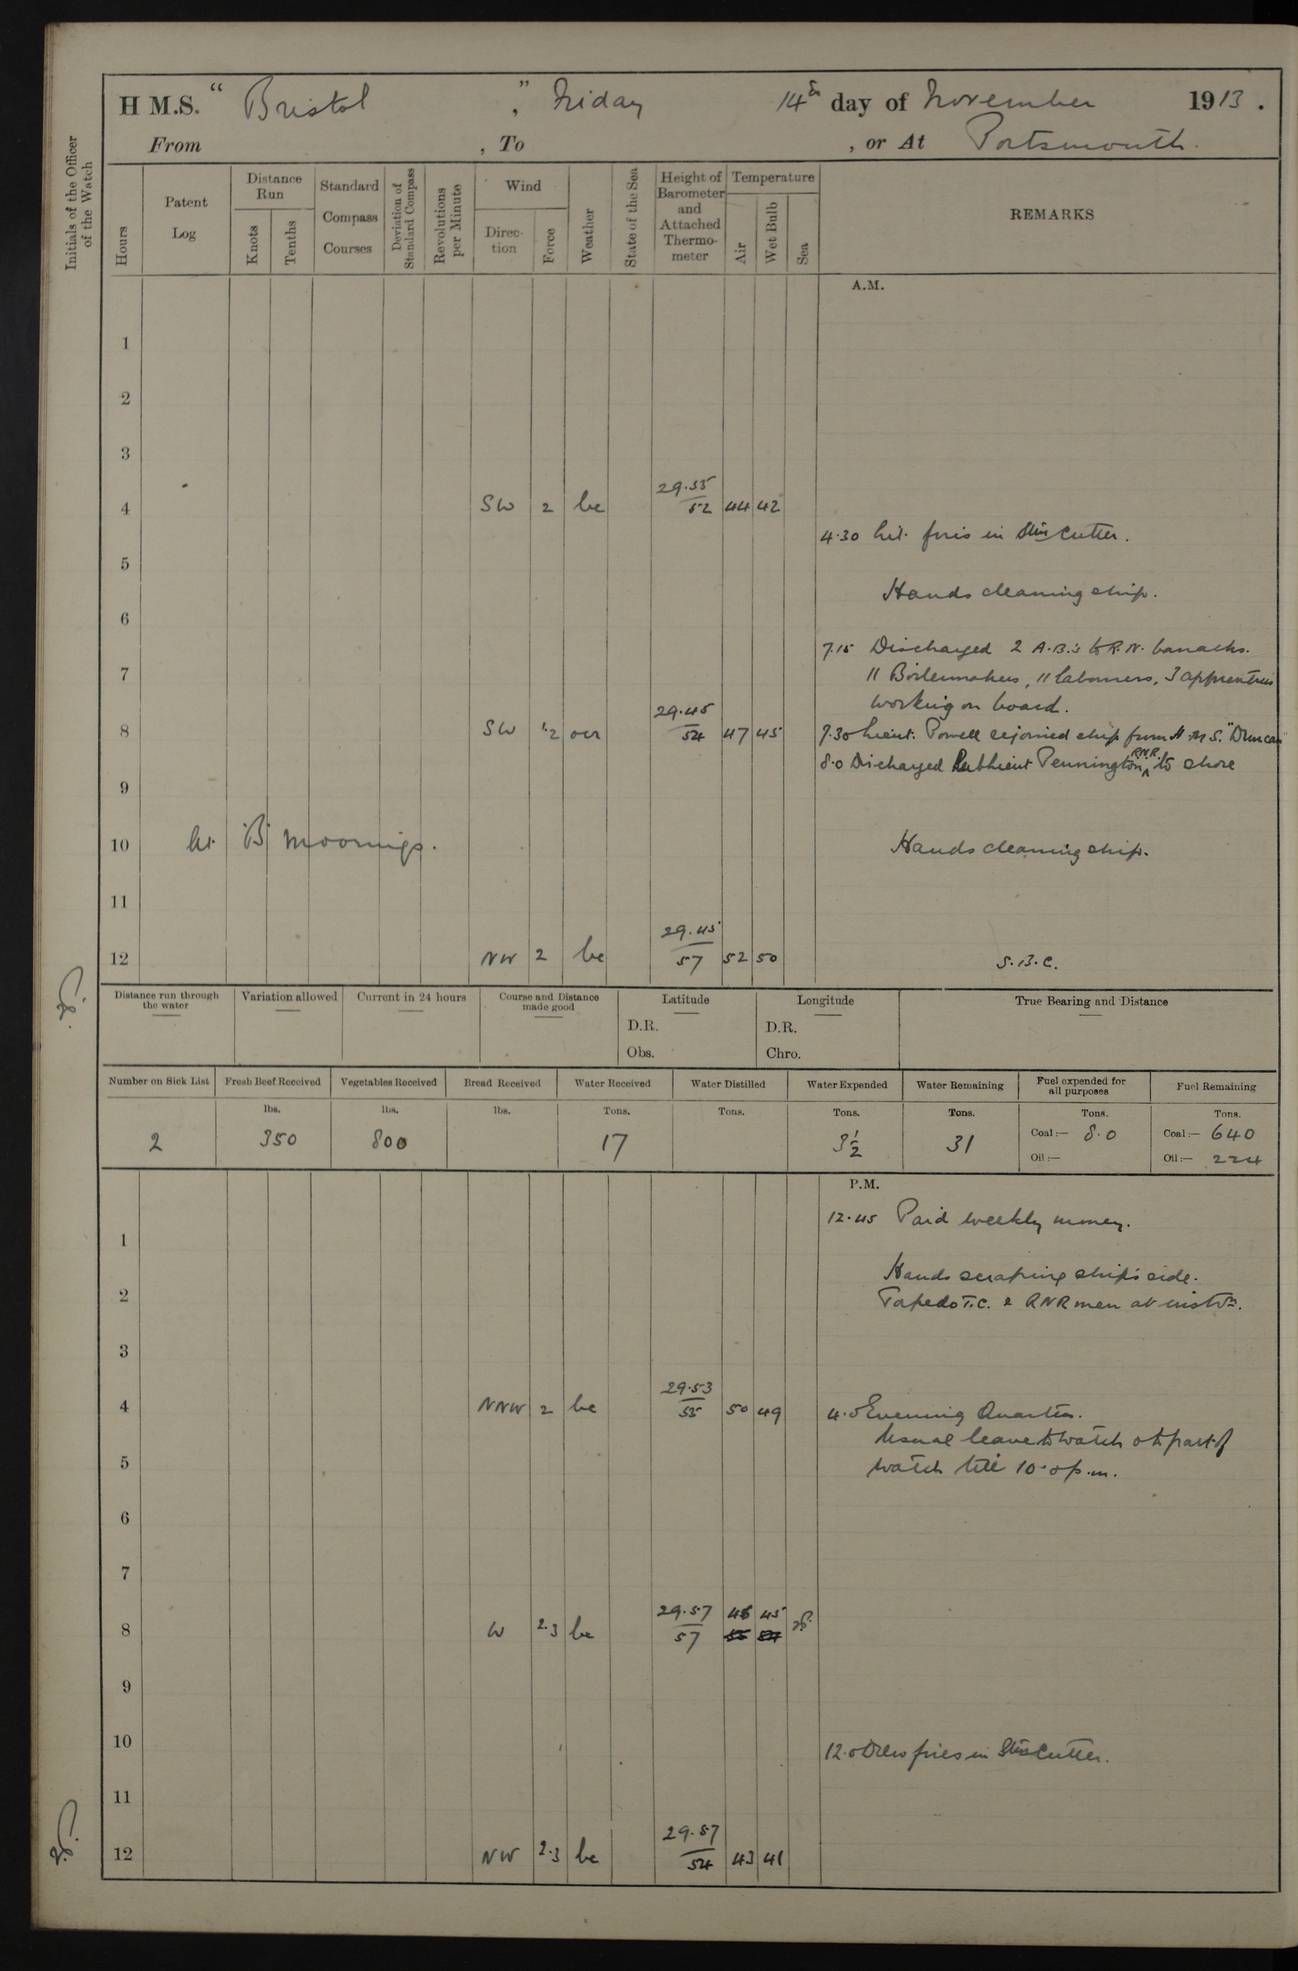 H.M.S. "Bristol", Friday 14th day of November 1913.
From , To , or At Portsmouth.
Initials of the Officer of the Watch
Hours
Patent Log
Distance Run
Knots
Tenths
Standard Compass Courses
Deviation of Standard Compass
Revolutions per Minute
Wind
Direction
Force
Weather
State of the Sea
Height of Barometer and Attached Thermometer
Temperature
Air
Wet Bulb
Sea
REMARKS
A.M.
1
2
3
4 SW 2 bc 29.55/52 44 42
4.30 Lit fires in Stm cutter.
5
Hands cleaning ship.
6
7.15 Discharged 2 A.B.'s to R.N. barracks.
7 11 Boilermakers, 11 labourers, 3 apprentices
working on board.
8 SW 1.2 ocr 29.45/54 47 45 7.30 Lieut. Powell rejoined ship from H.M.S. "Duncan"
8.0 Discharged Sub Lieut Pennington RNR to shore
9
10 At "B" moorings. Hands cleaning ship.
11
12 NW 2 bc 29.45/57 52 50
S.B.C.
Distance run through the water
Variation allowed
Current in 24 hours
Course and Distance made good
Latitude
D.R.
Obs.
Longitude
D.R.
Chro.
True Bearing and Distance
Number on Sick List
Fresh Beef Received
Vegetables Received
Bread Received
Water Received
Water Distilled
Water Expended
Water Remaining
Fuel expended for all purposes
Fuel Remaining
lbs. lbs. lbs. Tons. Tons. Tons. Tons. Tons. Tons.
2 350 800 17 3½ 31 Coal:— 8.0 Coal:— 640
Oil:— Oil:— 224
P.M.
12.45 Paid weekly money.
1
Hands scraping ship's side.
2 Torpedo T.C. & RNR men at instrn.
3
4 NNW 2 bc 29.53/55 50 49 4.0 Evening Quarters.
Usual leave to watch & to part of
5 watch till 10.0 p.m.
6
7
8 W 2.3 bc 29.57/57 46 45
9
10 12.0 Drew fires in Stm Cutter.
11
12 NW 2.3 bc 29.57/54 43 41